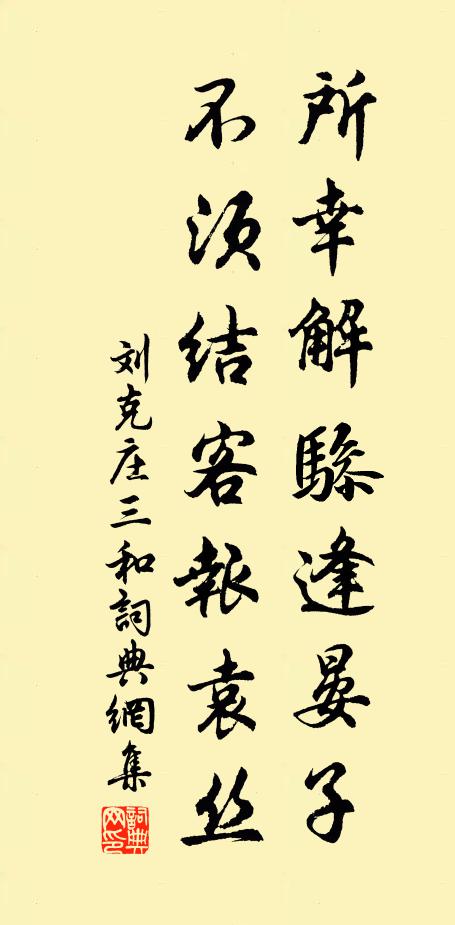 所幸解骖逢晏子
不须结客报袁丝
刘克庄三和詞典網集
詞典网印